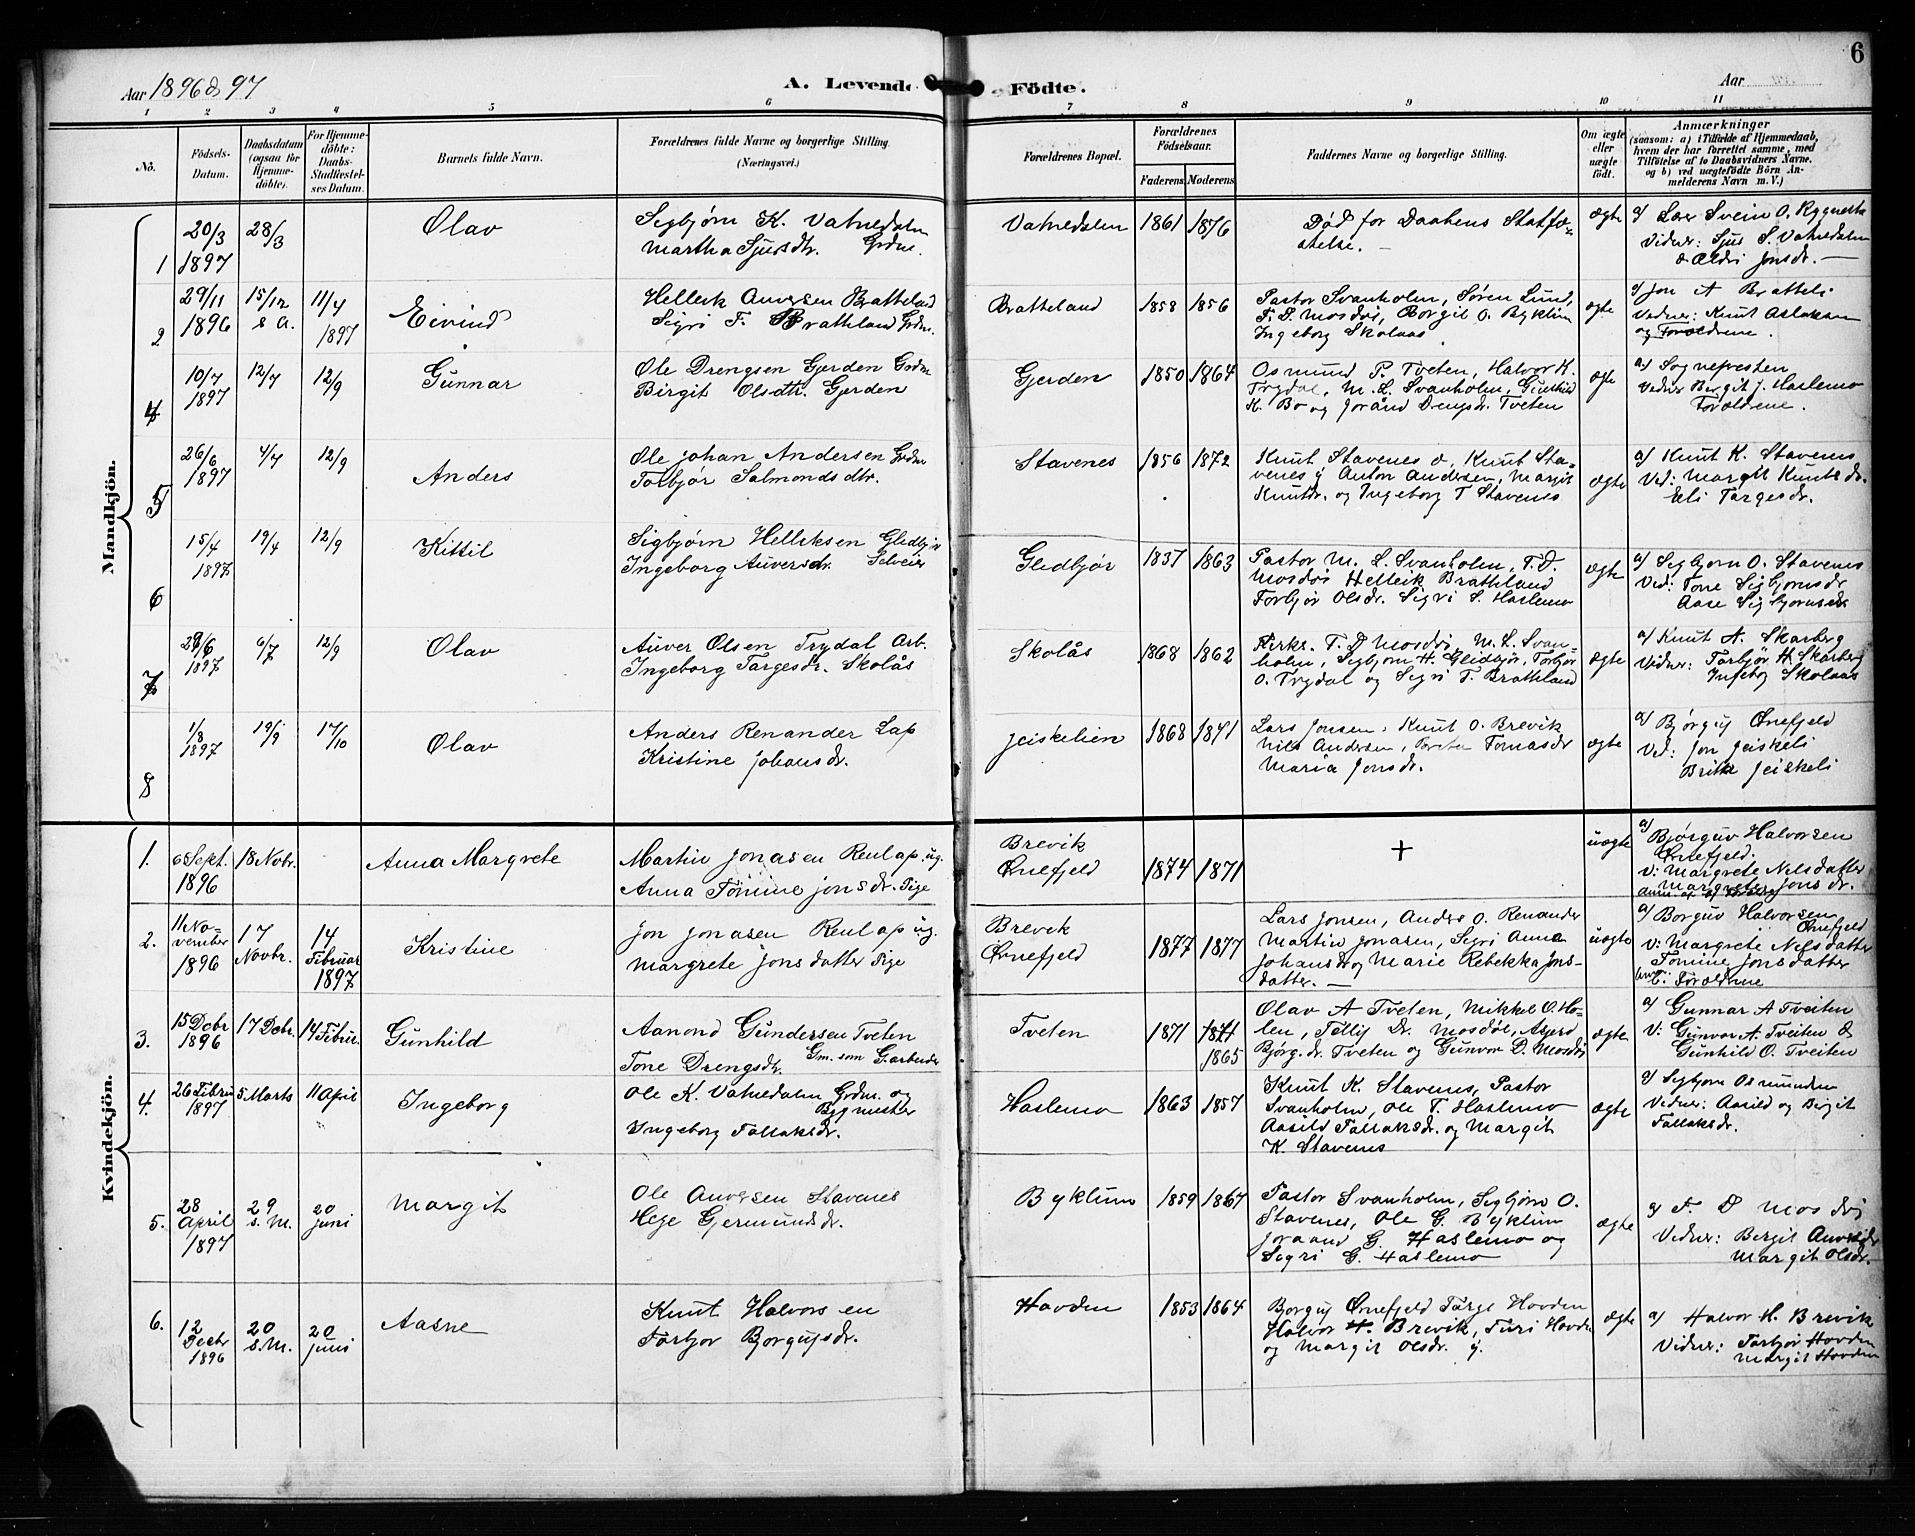 Aar 1896 & 97
A. Levende Födte.
Aar
6
1 2 3 4 5 6 7 8 9 10 11
No.
Födsels-Datum.
Daabsdatum (ogsaa for Hjemme-döbte).
For Hjemme-döbte: Daabs-Stadfæstel-ses Datum.
Barnets fulde Navn.
Forældrenes fulde Navne og borgerlige Stilling.
(Næringsvei.)
Forældrenes Bopæl.
Forældrenes Födselsaar.
Faderens Moderens
Faddernes Navne og borgerlige Stilling.
Om ægte eller uægte födt.
Anmærkninger
(saasom: a) i Tilfælde af Hjemmedaab,
hvem der har forrettet samme, med
Tilföielse af to Daabsvidners Navne.
og b) ved uægtefödte Börn An-
melderens Navn m. V.)
Mandkjön.
1
20/3 1897
28/3
Olav
Sigbjørn K. Vatnedalen
Martha Sjursdtr. Grdm.
Vatnedalen
1861 1876
Død før Daabens Statfæ-
stelse. —
ægte
a/ Lærer Svein O. Rygnestad
Vidner: Sjur S. Vatnedalen
& Aldri Jonsdr. —
2
29/11 1896
15/12 s. A.
11/4 1897
Eivind
Hellerik Auversen Bratteland
Sigri T. Bratteland Grdm.
Bratteland
1858 1856
Pastor Svanholm, Søren Lund,
T. D. Mosdøl, Borgit O. Byklum
Ingeborg Skolaas
ægte
a/ Jon A Bratteli
Vidner: Knut Aslaksen
og Forældrene
4
10/7 1897
12/7
12/9
Gunnar
Ole Drengsen Gjerden Grdm
Birgit Olsdtr. Gjerden
Gjerden
1850 1864
Osmund P. Tveten, Halvor K.
Trydal, M. L. Svanholm, Gunhild
K. Bo og Jorånd Dengsdr. Tveten
ægte
a/ Sognepresten
Vidner Bergit J. Haslemo
Forældrene.
5
26/6 1897
4/7
12/9
Anders
Ole Johan Andersen Grdm
Torbjør Salmondsdtr.
Stavenes
1856 1872
Knut Stavenes d, Knut Sta-
venes y Anton Andersen, Margit
Knutsdr. og Ingeborg T Stavenes
ægte
a/ Knut K. Stavenes
Vid: Margit Knutsdr.
Eli Targesdr.
6
15/4 1897
19/4
12/9
Kittil
Sigbjørn Helleksen Glidbjør
Ingeborg Auversdr. Selveier
Glidbjør
1837 1863
Pastor M. L. Svanholm, T. D.
Mosdøl Helleik Bratteland
Torbjør Olsdr. Sigri S. Haslemo
ægte
a/ Sigbjørn O. Stavenes
Vid: Tone Sigbjørnsdr
Aase Sigbjørnsdr
7
28/6 1897
6/7
12/9
Olav
Auver Olsen Trydal Arb.
Ingeborg Targesdr. Skolås
Skolås
1868 1862
Kirks. T. D Mosdøl, M. L. Svan-
holm, Sigbjørn H. Glidbjør, Torbjør
O. Trydal og Sigri T. Bratteland
ægte
a/ Knut A. Skarberg
Vidner: Torbjør H. Skarberg
Ingebog Skolaas
8
1/8 1897
19/9
17/10
Olav
Anders Renander Lap
Kristine Johansdr.
Jeiskelien
1868 1871
Lars Jonsen, Knut O. Brevik
Nils Andersen, Torsten Tomasdr
Maria Jonsdr.
ægte
a/ Bjørguv Ørnefjeld
Vid: Jon Jeiskeli
Brita Jeiskeli
Kvindekjön.
1.
6 Sept. 1896
18 Novbr.
Anna Margrete
Martin Jonasen Renlap. ug.
Anna Tomine Jonsdr. Pige
Brevik
Ørnefjeld
1874 1871
+
uægte
a/ Bjørguv Halvorsen
Ørnefjeld.
v: Margrete Nilsdatter
Margrete Jonsdr.
2.
11 No-vember 1896
17 Novbr.
14 Februar 1897
Kristine
Jon Jonasen Renlap ug.
Margrete Jonsdatter Pige
Brevik
Ørnefjeld
1877 1877
Lars Jonsen, Anders O. Renander
Martin Jonasen, Sigri Anna
Johansdr og Marie Rebekka Jons-
datter. —
uægte
a/ Borguv Halvorsen
Ørnefjeld
v: Margrete Nilsdatter
Tomine Jonsdatter
b: Forældrene
3.
15 Debr 1896
17 Debr.
14 Februar.
Gunhild
Aanond Gundersen Tveten
Tone Drengsdr. Gm. som Gaarbruder
Tveten
1871 1871 1865
Olav A Tveten, Mikkel O. Ho-
len, Tellif Dr. Mosdøl, Asjerd
Bjørg.dr. Tveten og Gunvor D. Mosdøl
ægte
a/ Gunnar A Tveiten
V: Gunvor A. Tveiten &
Gunhild O. Tveiten
4.
26 Febru 1897
5 Marts
11 April
Ingeborg
Ole K. Vatnedalen Grdm. og
Bygmester
Ingeborg Tallaksdr.
Haslemo
1863 1857
Knut K. Stavenes, Pastor
Svanholm, Ole T. Haslemo
Aasild Tallaksdr. og Margit
K. Stavenes
ægte
a/ Sigbjørn Osmundsen
Vidner: Aasild og Birgit
Tallaksdr.
5.
28 April 1897
29 s. M.
20 Juni
Margit
Ole Auversen Stavenes
Hege Gjermundsdr.
Byklum
1859 1867
Pastor Svanholm, Sigbjørn O.
Stavenes, Ole G. Byklum
Joraand G. Haslemo og
Sigri G. Haslemo
ægte
a/ T. D Mosdøl
Vidner: Bergit Auversdr
Margit Olsdr.
6.
12 Decbr 1896
20 s. M.
20 Juni
Aasne
Knut Halvorsen
Torbjør Borguvsdr.
Hovden
1853 1864
Borguv Ørnefjeld Targe Hovden
Halvor H. Brevik, Turi Hovden
og Margit Olsdr. y.
ægte
a/ Halvor H. Brevik
Vidner: Torbjør Hovden
Margit Hovden